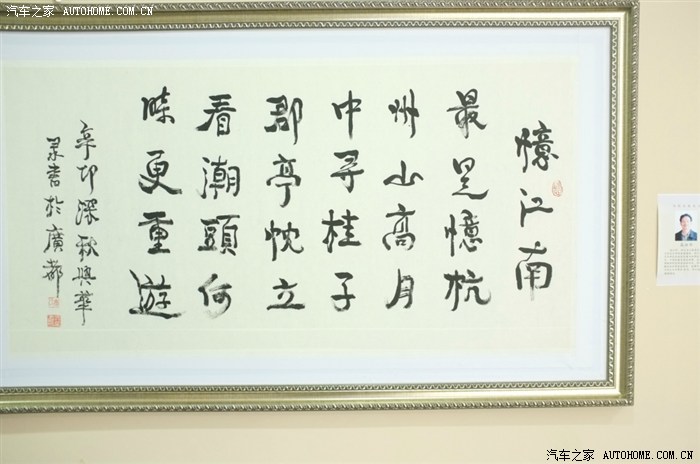 汽车之家 AUTOHOME.COM.CN
憶江南
最是憶杭
州山高月
中寻桂子
郡亭忱立
看潮頭何
時更重遊
辛卯深秋與華
录書於廣都
汽车之家 AUTOHOME.COM.CN